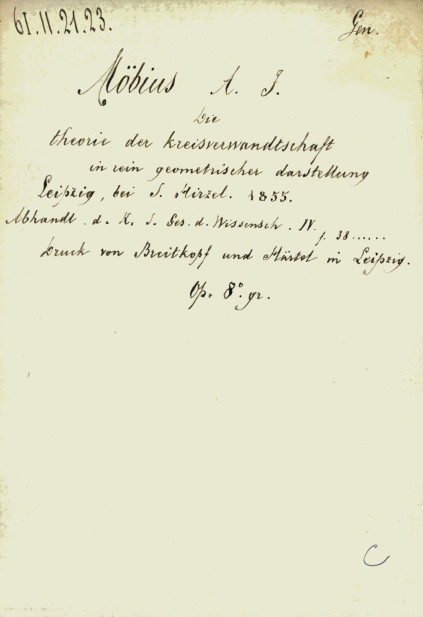 61.11.21.23.
Gen.
Möbius A. F.
Die
theorie der kreisverwandtschaft
in rein geometrischer darstellung
Leipzig, bei S. Hirzel. 1855.
Abhandl. d. K. S. Ges. d. Wissensch. IV.
f. 38......
Druck von Breitkopf und Härtel in Leipzig.
Op. 8°. gr.
C